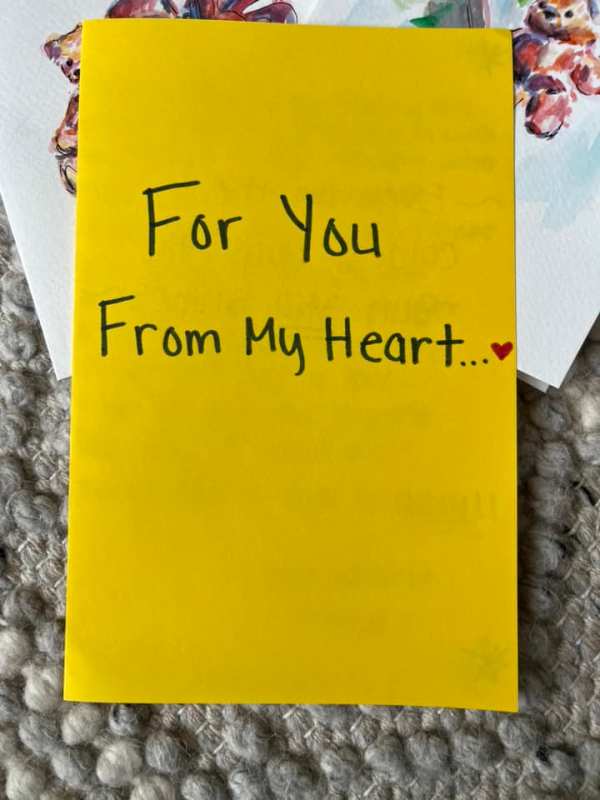 For You
From My Heart...♥